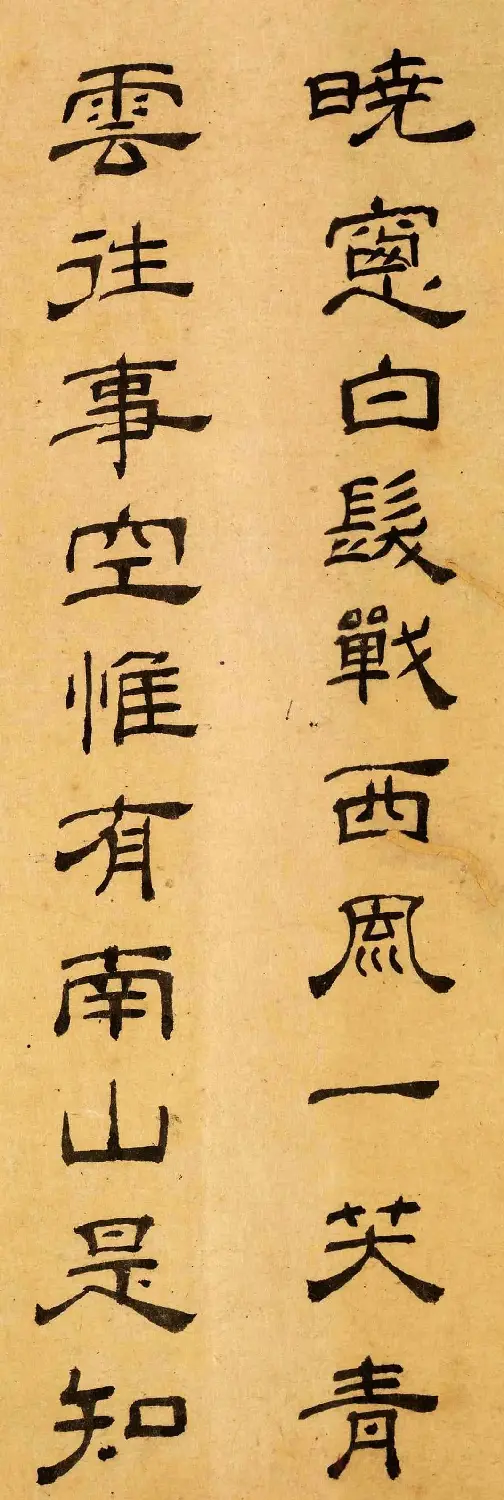 曉窻白髮戰西風一笑青
雲往事空惟有南山是知